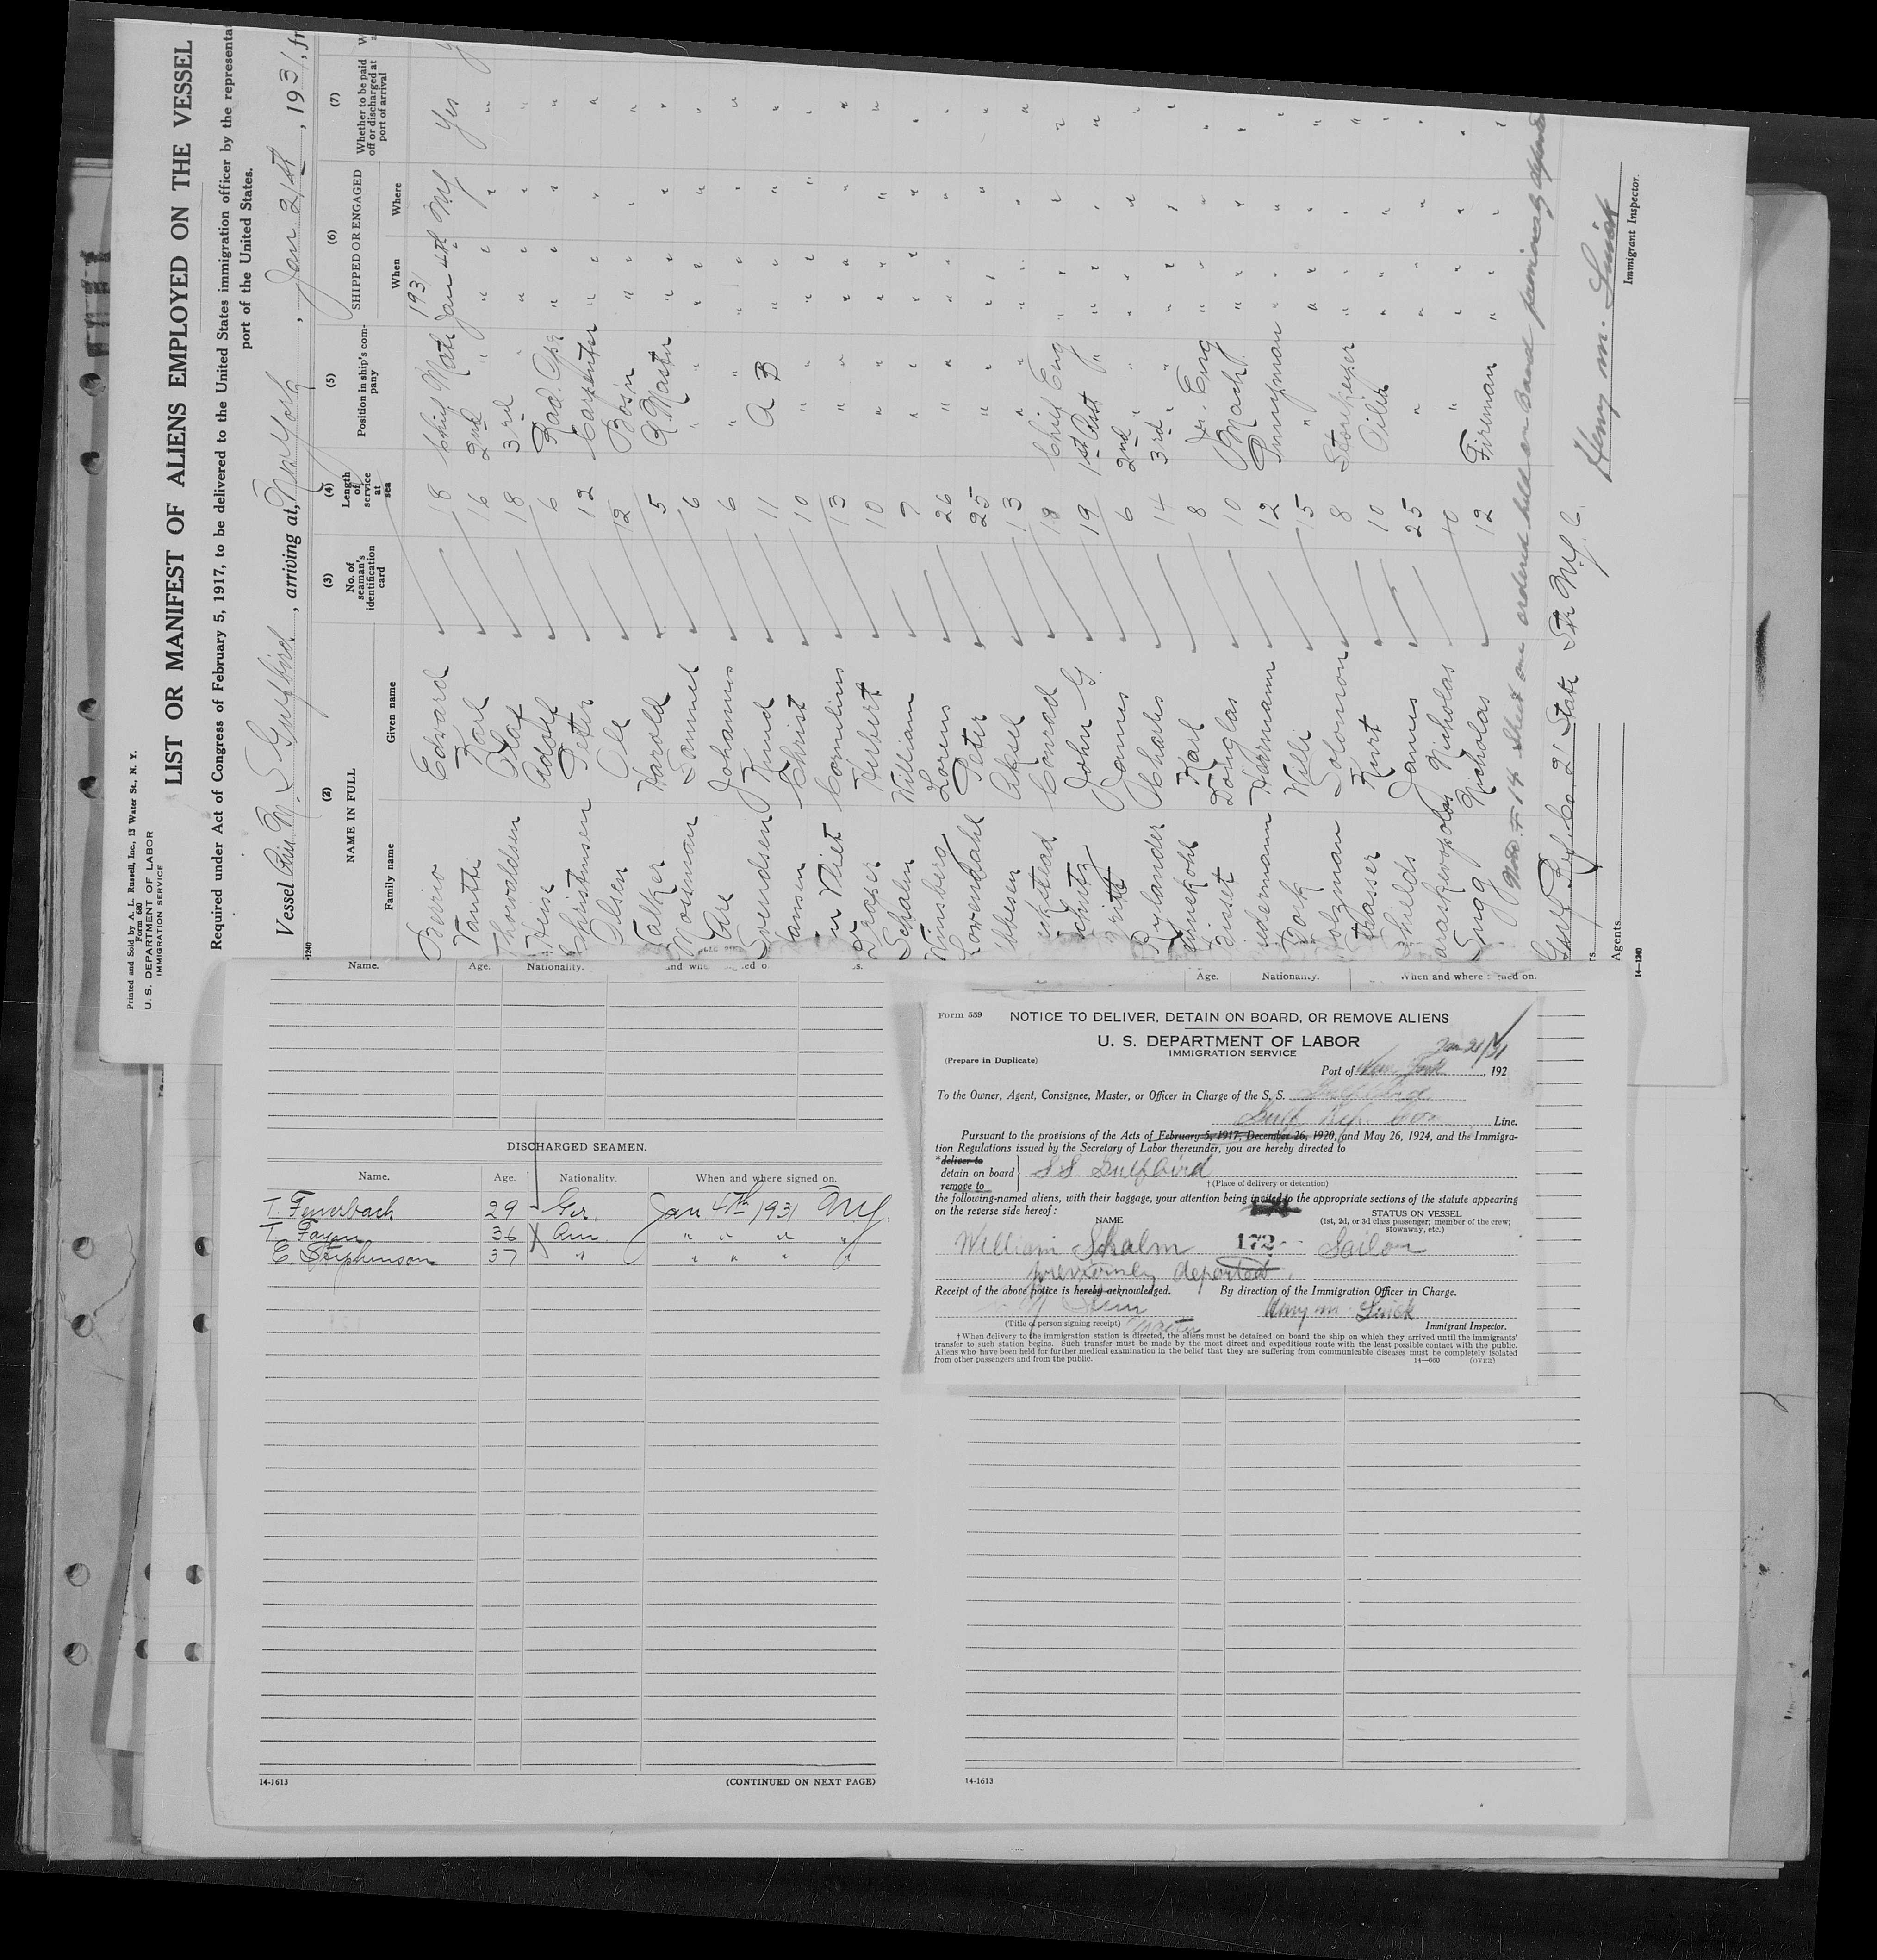 Printed and Sold by A. L. Russell, Inc., 13 Water St., N. Y.
Form 680
U. S. DEPARTMENT OF LABOR
IMMIGRATION SERVICE
LIST OR MANIFEST OF ALIENS EMPLOYED ON THE VESSEL
Required under Act of Congress of February 5, 1917, to be delivered to the United States immigration officer by the representa
port of the United States.
Vessel M. S Gulfbird, arriving at New York, Jan. 21st, 1931, fr
(2) (3) (4) (5) (6) (7)
NAME IN FULL No. of seaman's identification card Length of service at sea Position in ship's company SHIPPED OR ENGAGED Whether to be paid off or discharged at port of arrival
Family name Given name When Where
1931
Edward 18 Chief Mate Jan 4th NY Yes
Karl 16 2nd " " "
Thorvaldsen Olaf 18 3rd " " "
Heise Adolf 6 Rad. Opr " " "
Christensen Peter 12 Carpenter " " "
Olsen Ole 12 Bos'n " " "
Talker Harold 5 Q. Master " " "
6 " " " "
Johannes 6 " " " "
Svendsen Knud 11 A B " " "
Jansen Christ 10 " " " "
Vliet Cornelius 13 " " " "
Herbert 10 " " " "
Schalm William 7 " " " "
Winsberg Lorens 26 " " " "
Lovendahl Peter 25 " " " "
bbesen Aksel 13 " " " "
Conrad 18 Chief Eng " " "
Schutz John G. 19 1st Asst " " "
James 6 2nd " " " "
Rylander Charles 14 3rd " " " "
Karl 8 Jr. Eng " " "
Douglas 10 Mach. " " "
Hermann 12 Pumpman " " "
Willi 15 " " " "
Solomon 8 Storekeeper " " "
Kurt 10 Oiler " " "
Shields James 25 " " " "
Nicholas 10 " " " "
Nicholas 12 Fireman " " "
14 Sheet one ordered held on board previously deported
Gulf Ref Co 21 State Str N.Y.C.
Henry M. Linick
Immigrant Inspector.
Agents
14—1240
Name. Age. Nationality.
DISCHARGED SEAMEN.
Name. Age. Nationality. When and where signed on.
T. Feuerbach 29 Ger. Jan 4th 1931 N.Y.
T. Fayen 36 Am. " " " "
C. Stephenson 37 " " " " "
14-1613 (CONTINUED ON NEXT PAGE)
Age. Nationality. When and where signed on.
Form 559
NOTICE TO DELIVER, DETAIN ON BOARD, OR REMOVE ALIENS
U. S. DEPARTMENT OF LABOR
IMMIGRATION SERVICE
(Prepare in Duplicate)
Jan 21/31
Port of New York, 192
To the Owner, Agent, Consignee, Master, or Officer in Charge of the S. S. Gulfbird
Gulf Ref. Co Line.
Pursuant to the provisions of the Acts of February 5, 1917, December 26, 1920, and May 26, 1924, and the Immigra-
tion Regulations issued by the Secretary of Labor thereunder, you are hereby directed to
*deliver to
detain on board
remove to
SS Gulfbird
† (Place of delivery or detention)
the following-named aliens, with their baggage, your attention being invited to the appropriate sections of the statute appearing
on the reverse side hereof:
NAME STATUS ON VESSEL
(1st, 2d, or 3d class passenger; member of the crew; stowaway, etc.)
William Schalm 172 Sailor
previously deported.
Receipt of the above notice is hereby acknowledged. By direction of the Immigration Officer in Charge.
Henry M. Linick
(Title of person signing receipt) Master
Immigrant Inspector.
† When delivery to the immigration station is directed, the aliens must be detained on board the ship on which they arrived until the immigrants'
transfer to such station begins. Such transfer must be made by the most direct and expeditious route with the least possible contact with the public.
Aliens who have been held for further medical examination in the belief that they are suffering from communicable diseases must be completely isolated
from other passengers and from the public. 14—660 (OVER)
14-1613